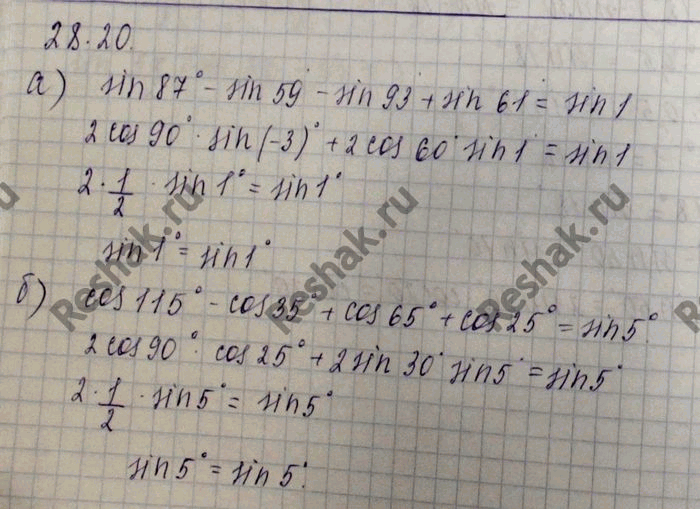 28.20.
а) sin 87° - sin 59° - sin 93° + sin 61 = sin 1
2 cos 90° · sin(-3)° + 2 cos 60° sin 1° = sin 1
2 · 1/2 · sin 1° = sin 1°
sin 1° = sin 1°
б) cos 115° - cos 35° + cos 65° + cos 25° = sin 5°
2 cos 90° · cos 25° + 2 sin 30° sin 5° = sin 5°
2 · 1/2 · sin 5° = sin 5°
sin 5° = sin 5°.
Reshak.ru
Reshak.ru
Reshak.ru